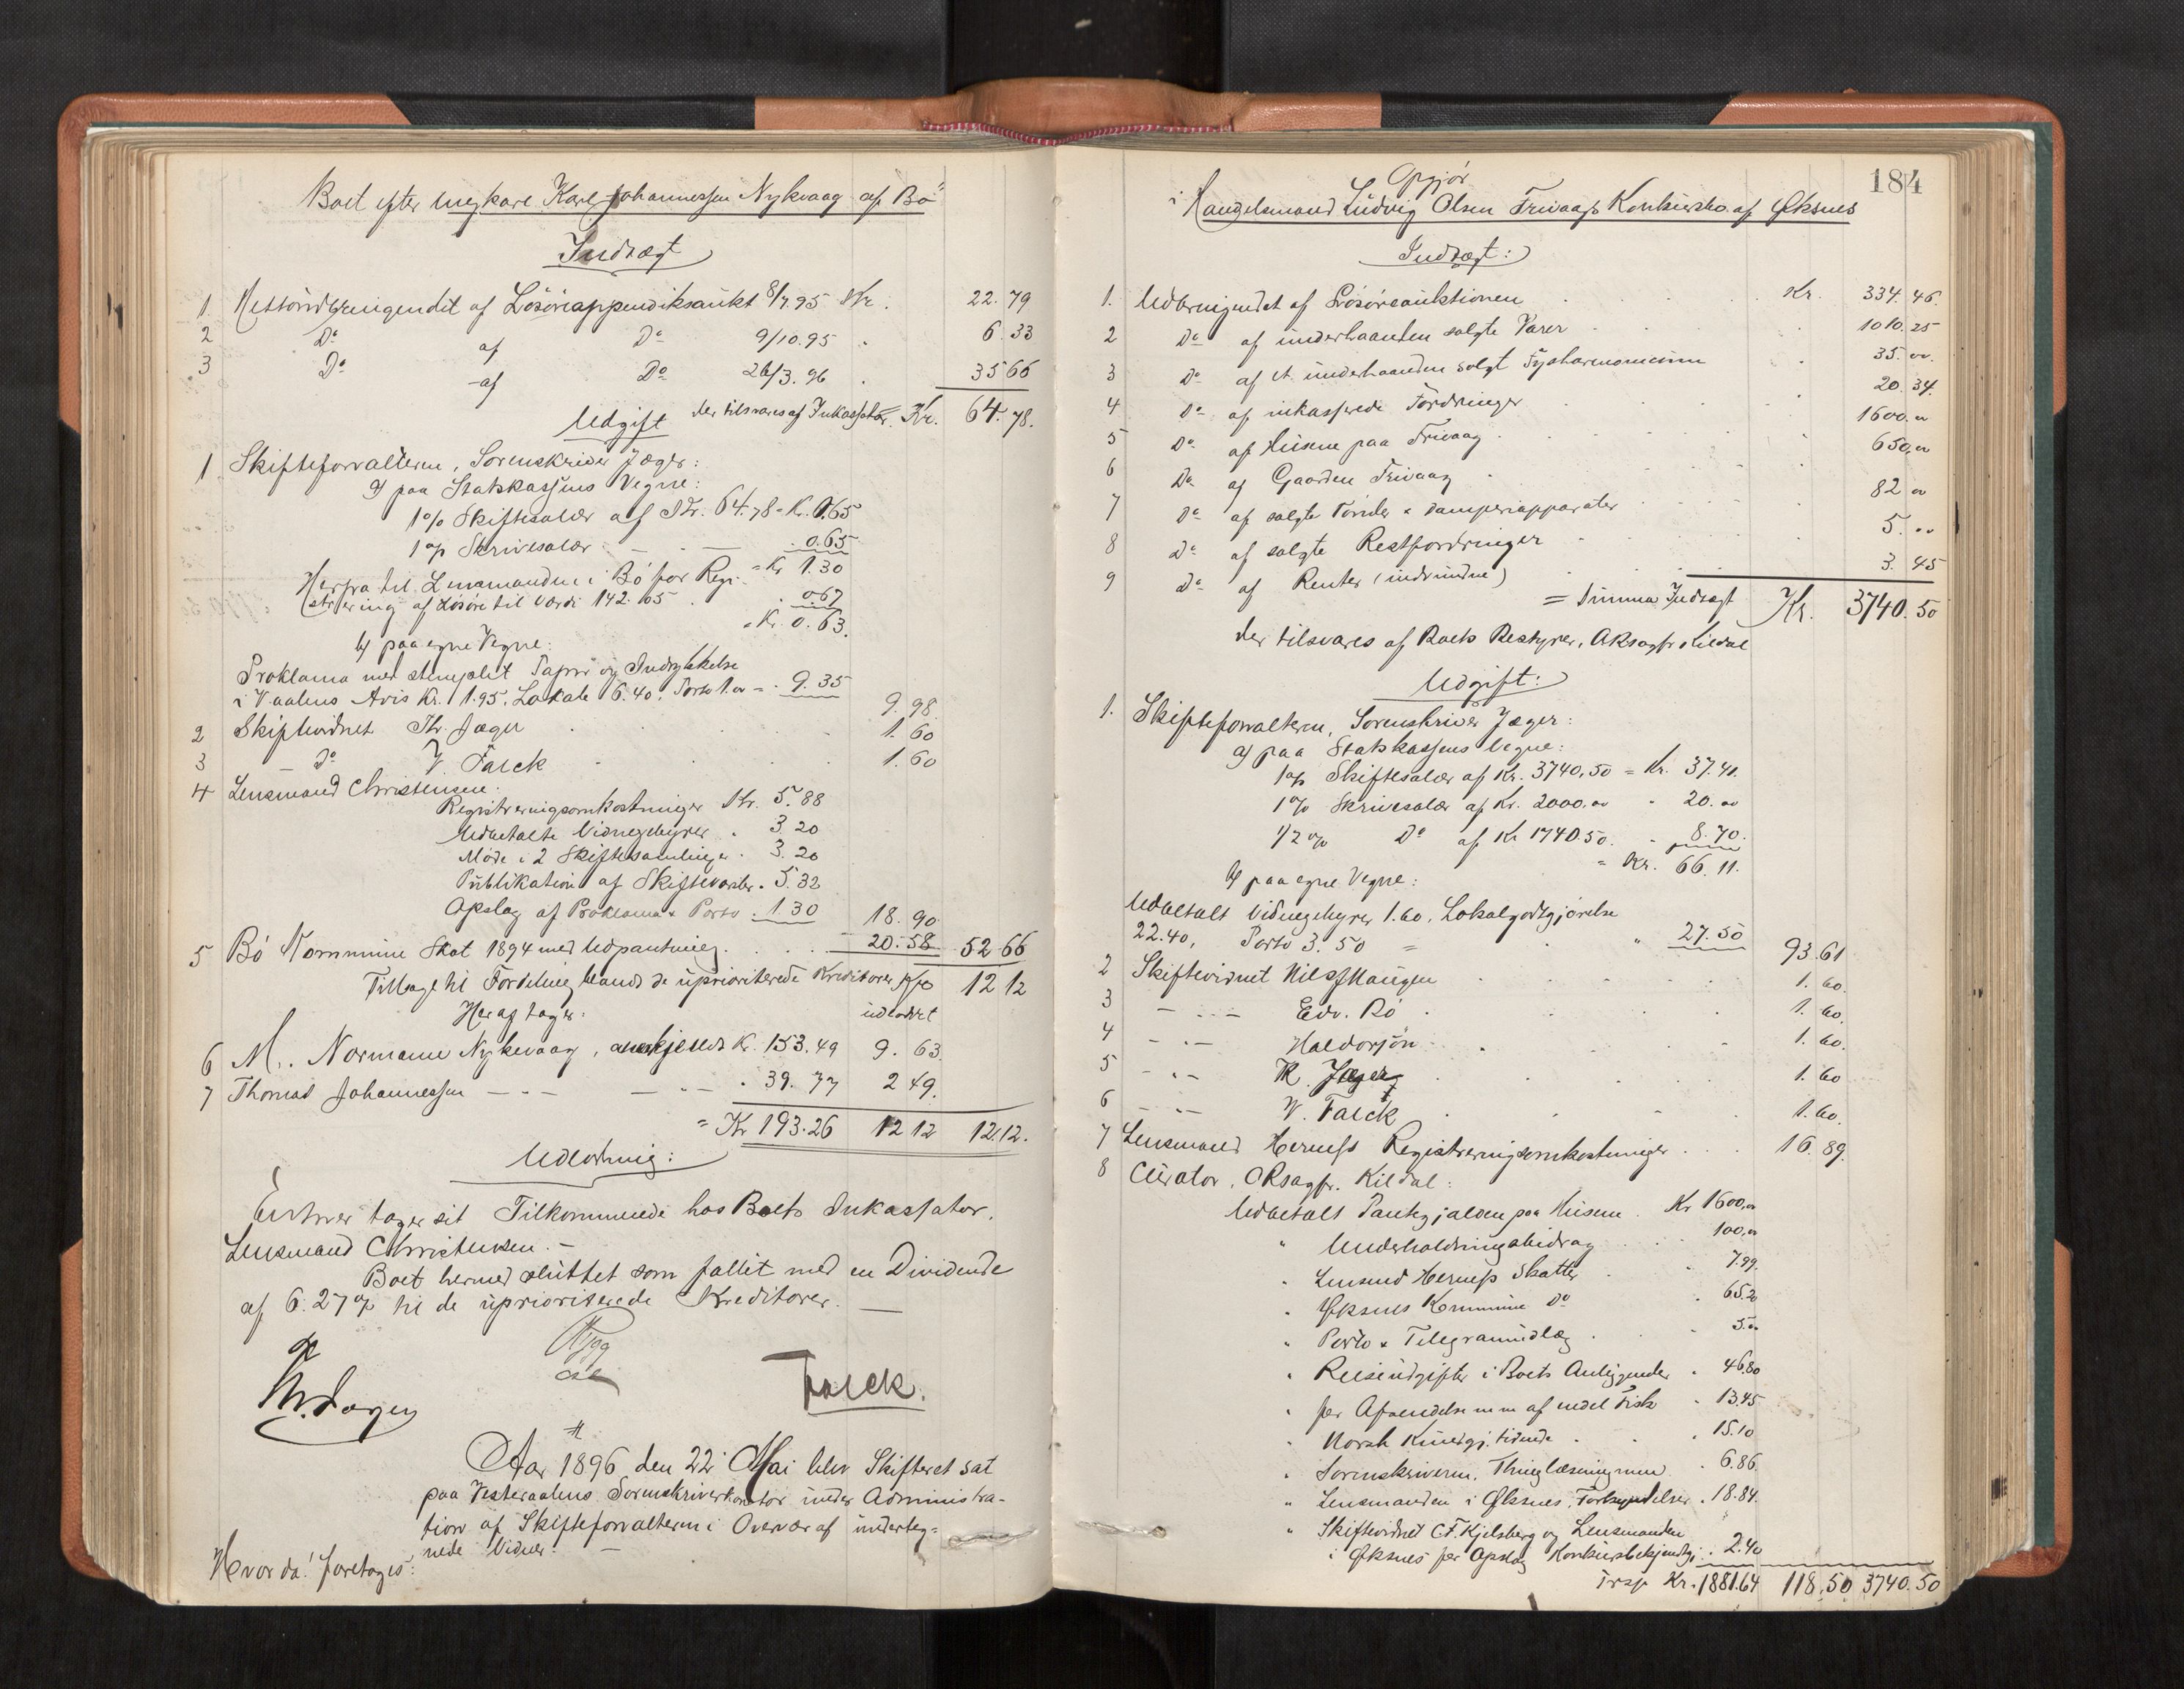 Boet efter ungkarl Karl Johannessen Nykvaag af Bö
Indtægt
1. Nettoudbringendet af Lösöreappendiksaukt 8/7 95 Kr. 22.79
2 Do af Do 9/10.95 . 6.33
3 Do af Do 26/3.96 . 35 66
der tilsvares af Inkassator Kr. 64.78.
Udgift
1 Skifteforvalteren, Sorenskriver Jæger:
a) paa Statskassens Vegne:
1% Skiftesalær af Kr. 64.78 = Kr. 0.65
1% Skrivesalær . 0.65
= Kr 1.30
Herfra til Lensmanden i Bö for Regi-
strering af Lösöre til Værdi 142.05 . 0.67
= Kr. 0.63.
b) paa egne Vegne:
Proklama med stemplet Papir og Indrykkelse
i V.aalens Avis Kr. 1.95, Lokale 6.40, Porto 1.00 = . 9.35
9.98
2 Skiftevidnet Th. Jæger 1.60
3 Do V. Falck 1.60
4 Lensmand Christensen:
Registreringsomkostninger Kr. 5.88
Udbetalte Vidnegebyrer . 3.20
Möde i 2 Skiftesamlinger . 3.20
Publikation af Skiftevarsler . 5.32
Opslag af Proklama & Porto . 1.30 18.90
5 Bö Kommune Skat 1894 med Udpantning . 20.58 52 66
Tilbage til Fordeling blandt de uprioriterede Kreditorer Kr 12 12
Heraf tager: udloddet
6 M. Normann Nykvaag, anerkjendt Kr. 153.49 9.63
7 Thomas Johannessen — " — — " — . 39.77 2 49.
= Kr 193.26 12 12 12.12.
Udlodning:
Enhver tager sit Tilkommende hos Boets Inkassator,
Lensmand Christensen. —
Boet hermed sluttet som fallit med en Dividende
af 6.27% til de uprioriterede Kreditorer. —
Falck.
Aar 1896 den 22 Mai blev Skifteret sat
paa Vesteraalens Sorenskriverkontor under Administra-
tion af Skifteforvalteren i Overvær af underteg-
nede Vidner. —
Hvorda! foretoges:
184
Opgjör
i Handelsmand Ludvig Olsen Frivaags Konkursbo af Öksnes
Indtægt:
1. Udbringendet af Lösöreauktionen Kr. 334.46.
2 Do af underhaanden solgte Varer 1010.25
3 Do af et underhaanden solgt Fysharmonium 35.00.
4 Do af inkasserede Fordringer 20.34.
5 Do af Husene paa Frivaag 1600.00
6 Do af Gaarden Frivaag 650,00
7 Do af solgte Tönder & Damperiapparater 82 00
8 Do af solgte Restfordringer 5.00
9 Do af Renter (indvundne) 3.45
= Summa Indtægt Kr. 3740.50
der tilsvares af Boets Bestyrer, ORsagfr. Kildal
Udgift:
1. Skifteforvalteren, Sorenskriver Jæger:
a) paa Statskassens Vegne:
1% Skiftesalær af Kr. 3740,50 = Kr. 37.41.
1% Skrivesalær af Kr. 2000,00 . 20.00
1/2 % Do af Kr 1740.50. . 8.70.
= Kr. 66.11.
b) paa egne Vegne:
Udbetalt Vidnegebyrer 1.60, Lokalgodtgjörelse
22.40, Porto 3.50 = " 27.50
93.61
2 Skiftevidnet Nils Haugen 1.60.
3 — " — Edv. Bö 1.60.
4 — " — Haldorsön 1.60.
5 — " — Th. Jæger 1.60
6 — " — V. Falck 1.60.
7 Lensmand Herness Registreringsomkostninger 16.89.
8 Curator, ORsagfr. Kildal:
Udbetalt Pantegjælden paa Husene . Kr 1600,00
" Underholdningsbidrag 100,00
" Lensmd Herness Skatter . 7.99.
" Öksnes Kommune Do . 65.20
" Porto & Telegramudlæg . 5.00
" Reiseudgifter i Boets Anliggender . 46.80
" for Afsendelse m m af endel Fisk . 13.45
" Norsk Kundgj. tidende . 15.10
" Sorenskriveren, Thinglæsning m m . 6.86.
" Lensmanden i Öksnes, Forkyndelser . 18.84.
" Skiftevidnet C.F. Kjelsberg og Lensmanden
i Öksnes for Opslag Konkursbekjendtgj. . 2.40
Trsp. Kr. 1881.64 118.50 3740.50